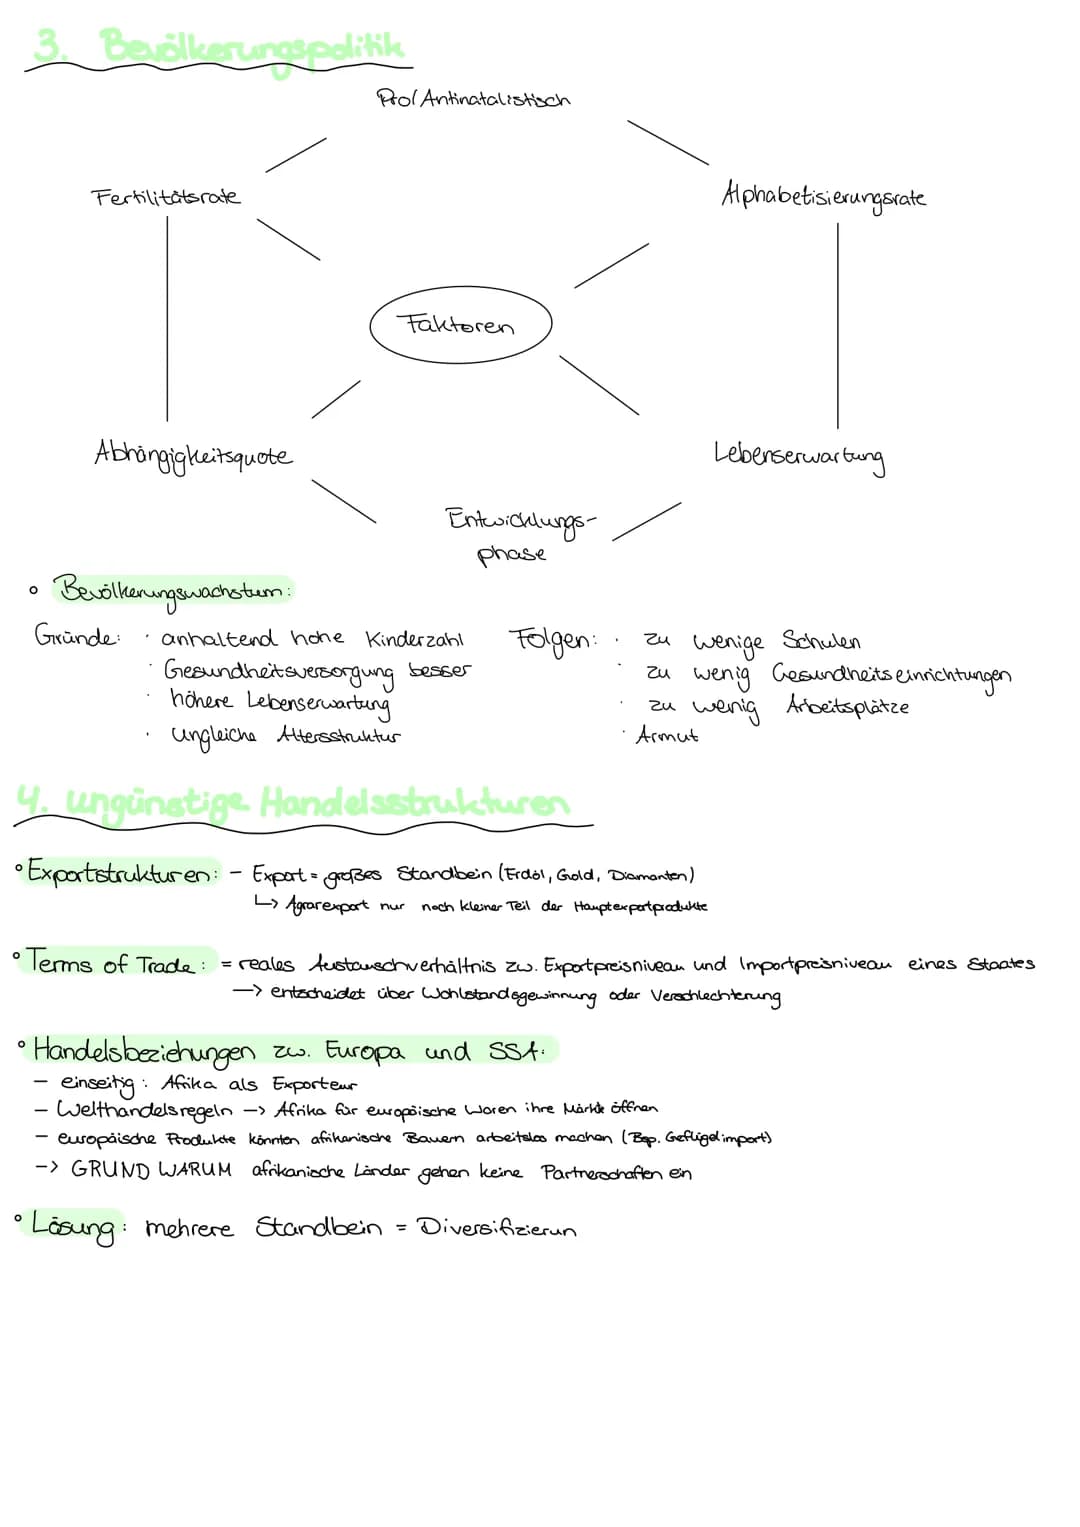 3. Bevölkerungspolitik
Pro/Antinatalistisch
Fertilitätsrate
Alphabetisierungsrate
Faktoren
Abhängigkeitsquote
Lebenserwartung
Entwicklungs-
phase
° Bevölkerungswachstum:
Gründe: · anhaltend hohe Kinderzahl
· Gesundheitsversorgung besser
· höhere Lebenserwartung
· ungleiche Altersstruktur
Folgen: · zu wenige Schulen
· zu wenig Gesundheitseinrichtungen
· zu wenig Arbeitsplätze
· Armut
4. ungünstige Handelsstrukturen
° Exportstrukturen: - Export = großes Standbein (Erdöl, Gold, Diamanten)
↳ Agrarexport nur noch kleiner Teil der Hauptexportprodukte
° Terms of Trade: = reales Austauschverhältnis zw. Exportpreisniveau und Importpreisniveau eines Staates
-> entscheidet über Wohlstandsgewinnung oder Verschlechterung
° Handelsbeziehungen zw. Europa und SSA:
- einseitig: Afrika als Exporteur
- Welthandelsregeln -> Afrika für europäische Waren ihre Märkte öffnen
- europäische Produkte könnten afikanische Bauern arbeitslos machen (Bsp. Geflügelimport)
-> GRUND WARUM afrikanische Länder gehen keine Partnerschaften ein
° Lösung: mehrere Standbein = Diversifizierun